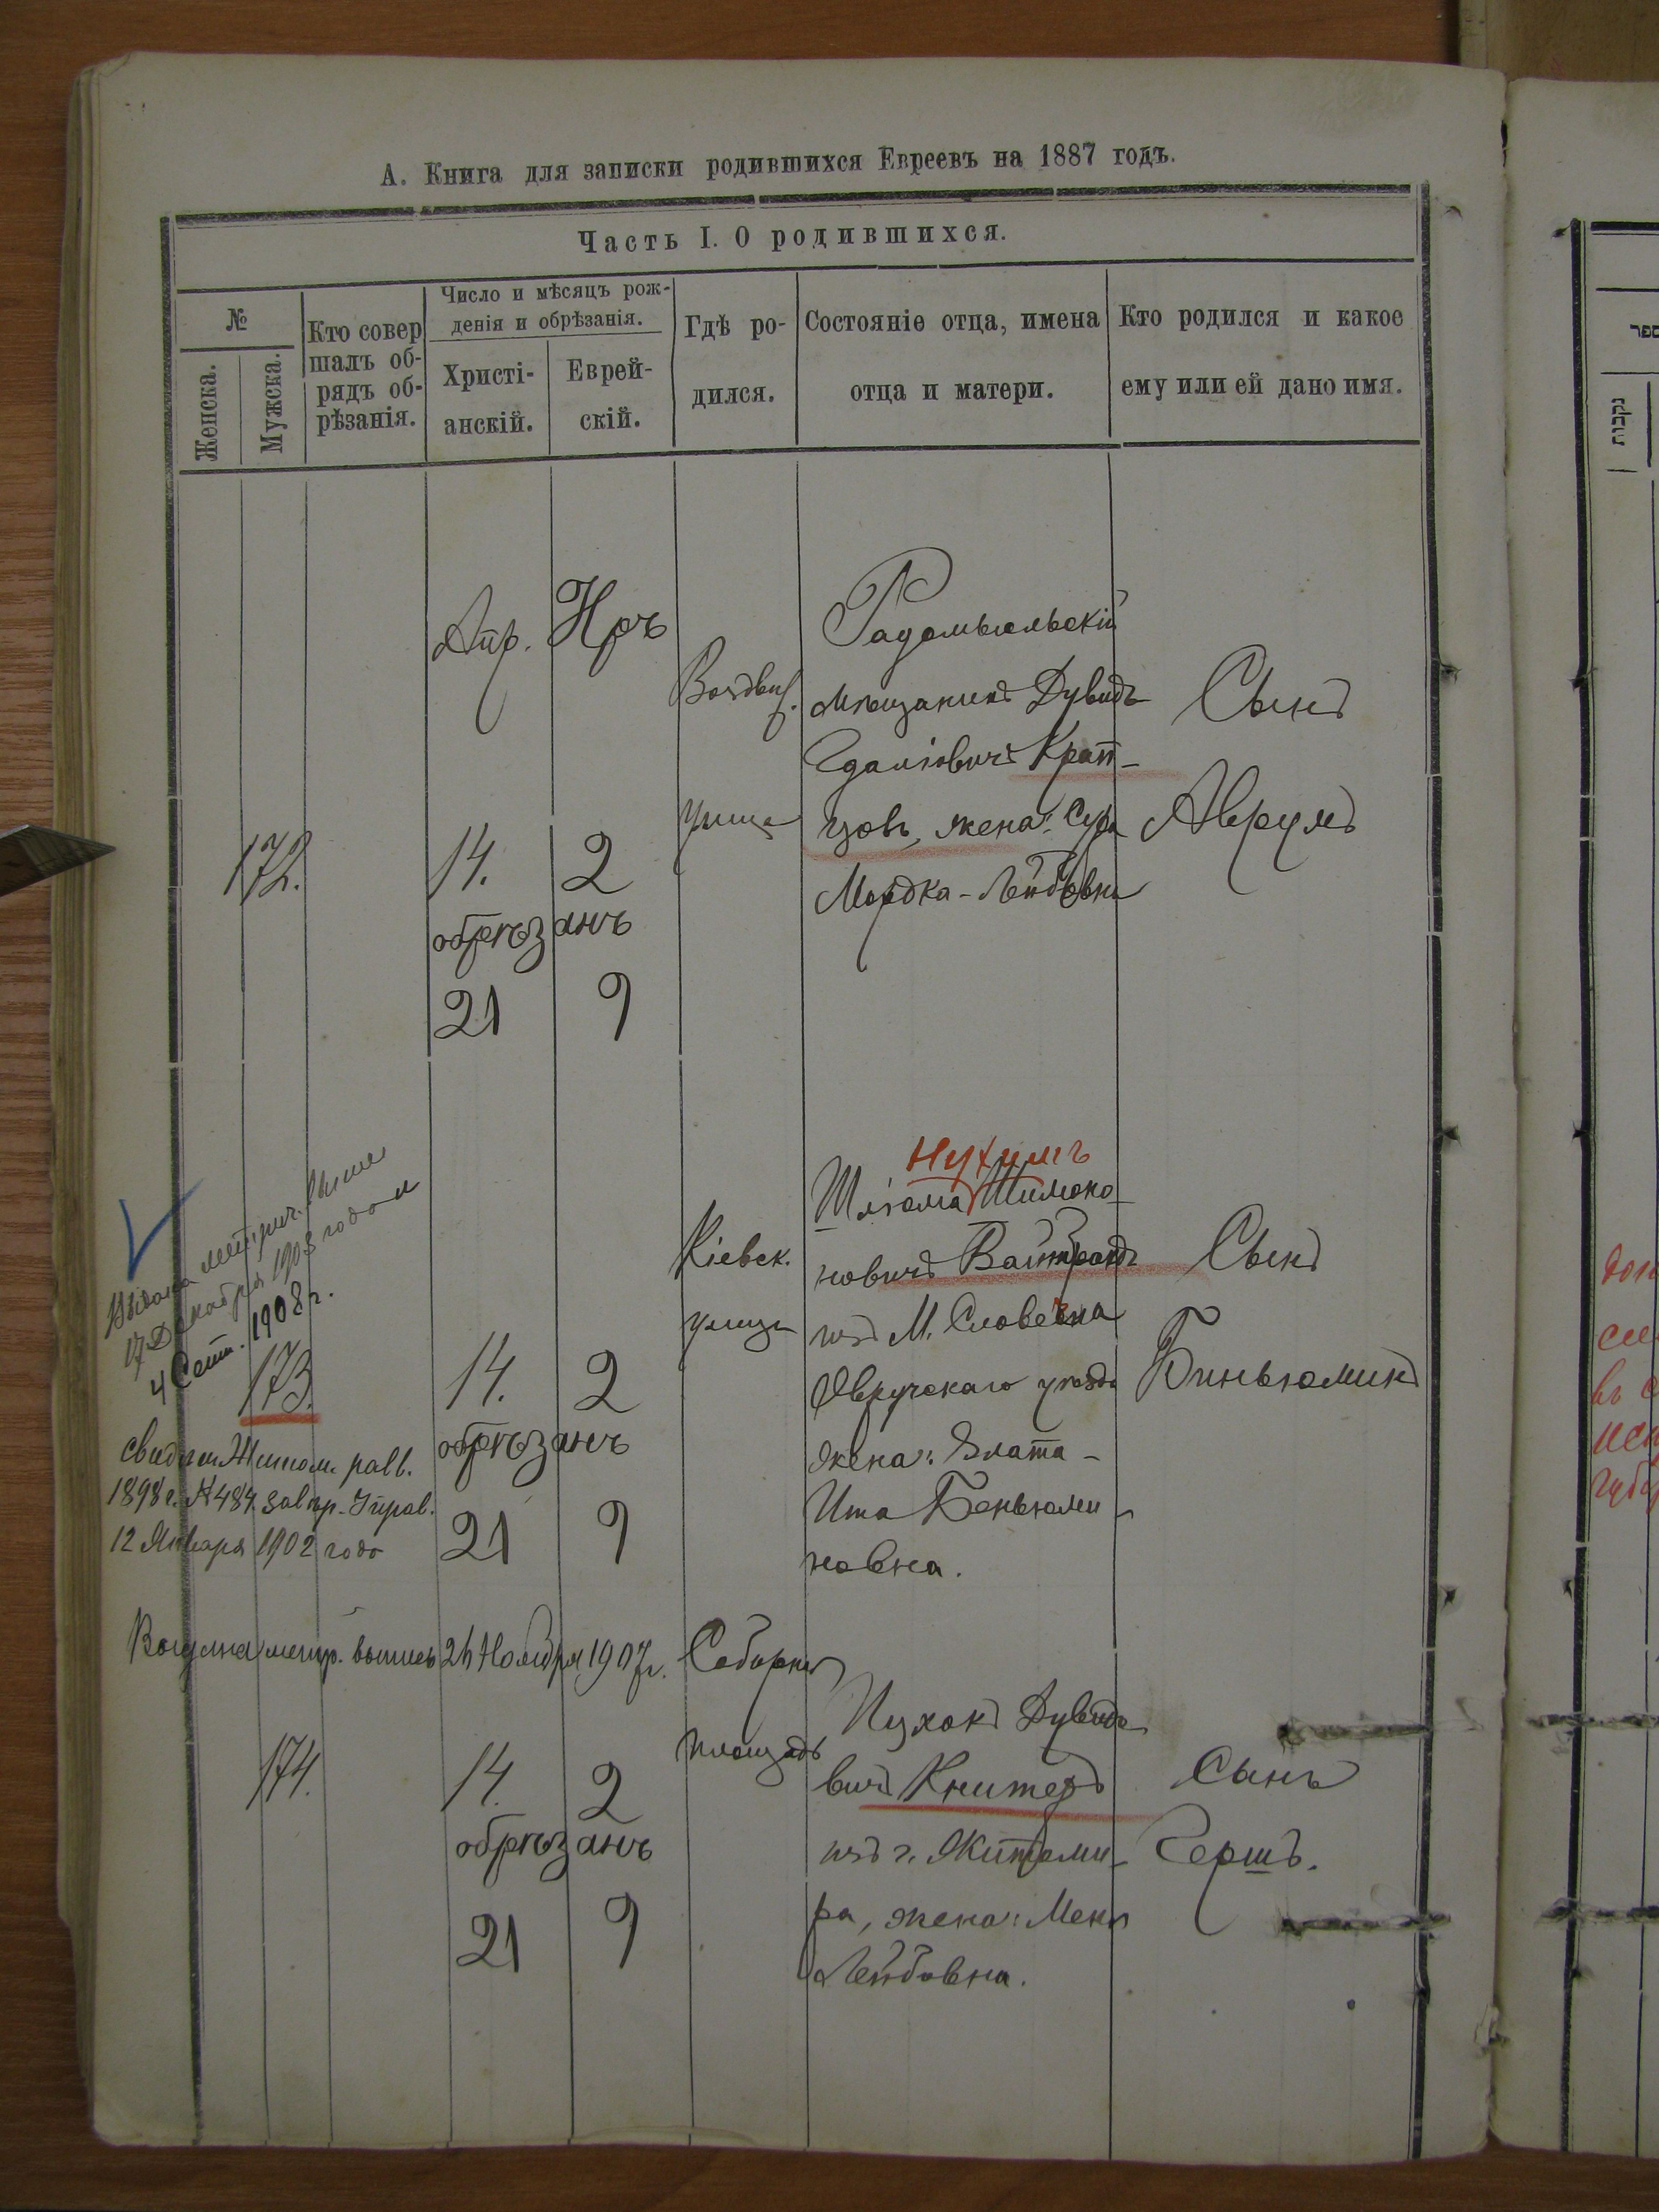 А. Книга для записки родившихся Евреевъ на 1887 годъ.
Часть I. О родившихся.
№
Женска.
Мужска.
Кто совер
шалъ об-
рядъ об-
рѣзанія.
Число и мѣсяцъ рож-
денія и обрѣзанія.
Христі-
анскій.
Еврей-
скій.
Гдѣ ро-
дился.
Состояніе отца, имена
отца и матери.
Кто родился и какое
ему или ей дано имя.
172.
Апр.
14.
Нръ
2
обрѣзанъ
21 9
Воздвиж.
улица
Радомысльскій
мѣщанинъ Дувидъ
Гдаліовичъ Крап-
цовъ, жена: Сура
Мордка-Лейбовна
Сынъ
Аврумъ
Выдана метрич. выпись
17 Декабря 1903 года
4 Сент. 1908 г.
173.
свидѣт. Житом. равв.
1898 г. № 484. Зав. гр. Управ.
12 Января 1902 года
14. 2
обрѣзанъ
21 9
Кіевск.
улица
Нухимъ
Шліома Шимоно-
новичъ Вайтрандъ
изъ М. Словечна
Овручскаго уѣзда
жена: Злата-
Ита Беньюми-
новна.
Сынъ
Биньюминъ
метр. выпись 24 Ноября 1907 г.
174.
14. 2
обрѣзанъ
21 9
Соборная
площадь
Ицхокъ Дувидо-
вичъ Книтеръ
изъ г. Житоми-
ра, жена: Меня
Лейбовна.
Сынъ
Гершъ.
ספר
נקבות